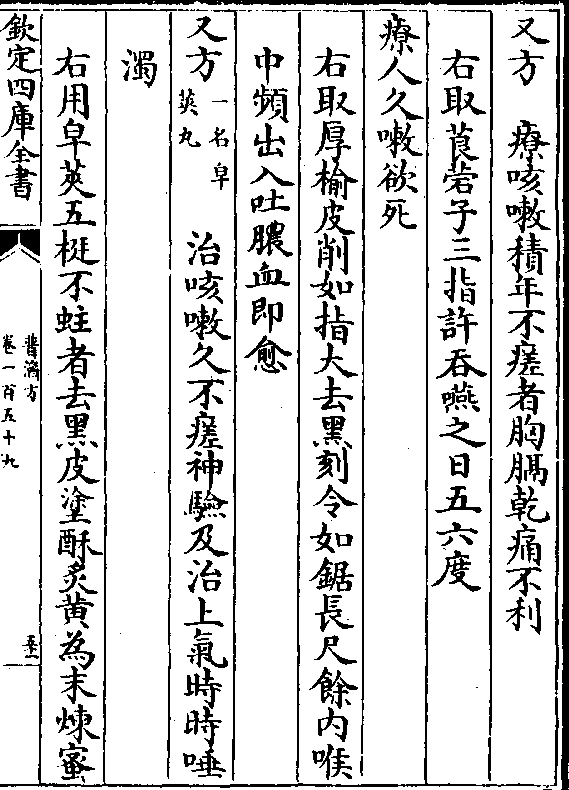 又方　療咳嗽積年不瘥者胸膈乾痛不利
右取莨菪子三指許吞嚥之日五六度
療人久嗽欲死
右取厚榆皮削如指大去黑刻令如鋸長尺餘内喉
中頻出入吐膿血即愈
又方一名皁莢丸　治咳嗽久不瘥神驗及治上氣時時唾
濁
右用皁莢五梃不蛀者去黑皮塗酥炙黄為末煉蜜
欽定四庫全書
普濟方
卷一百五十九